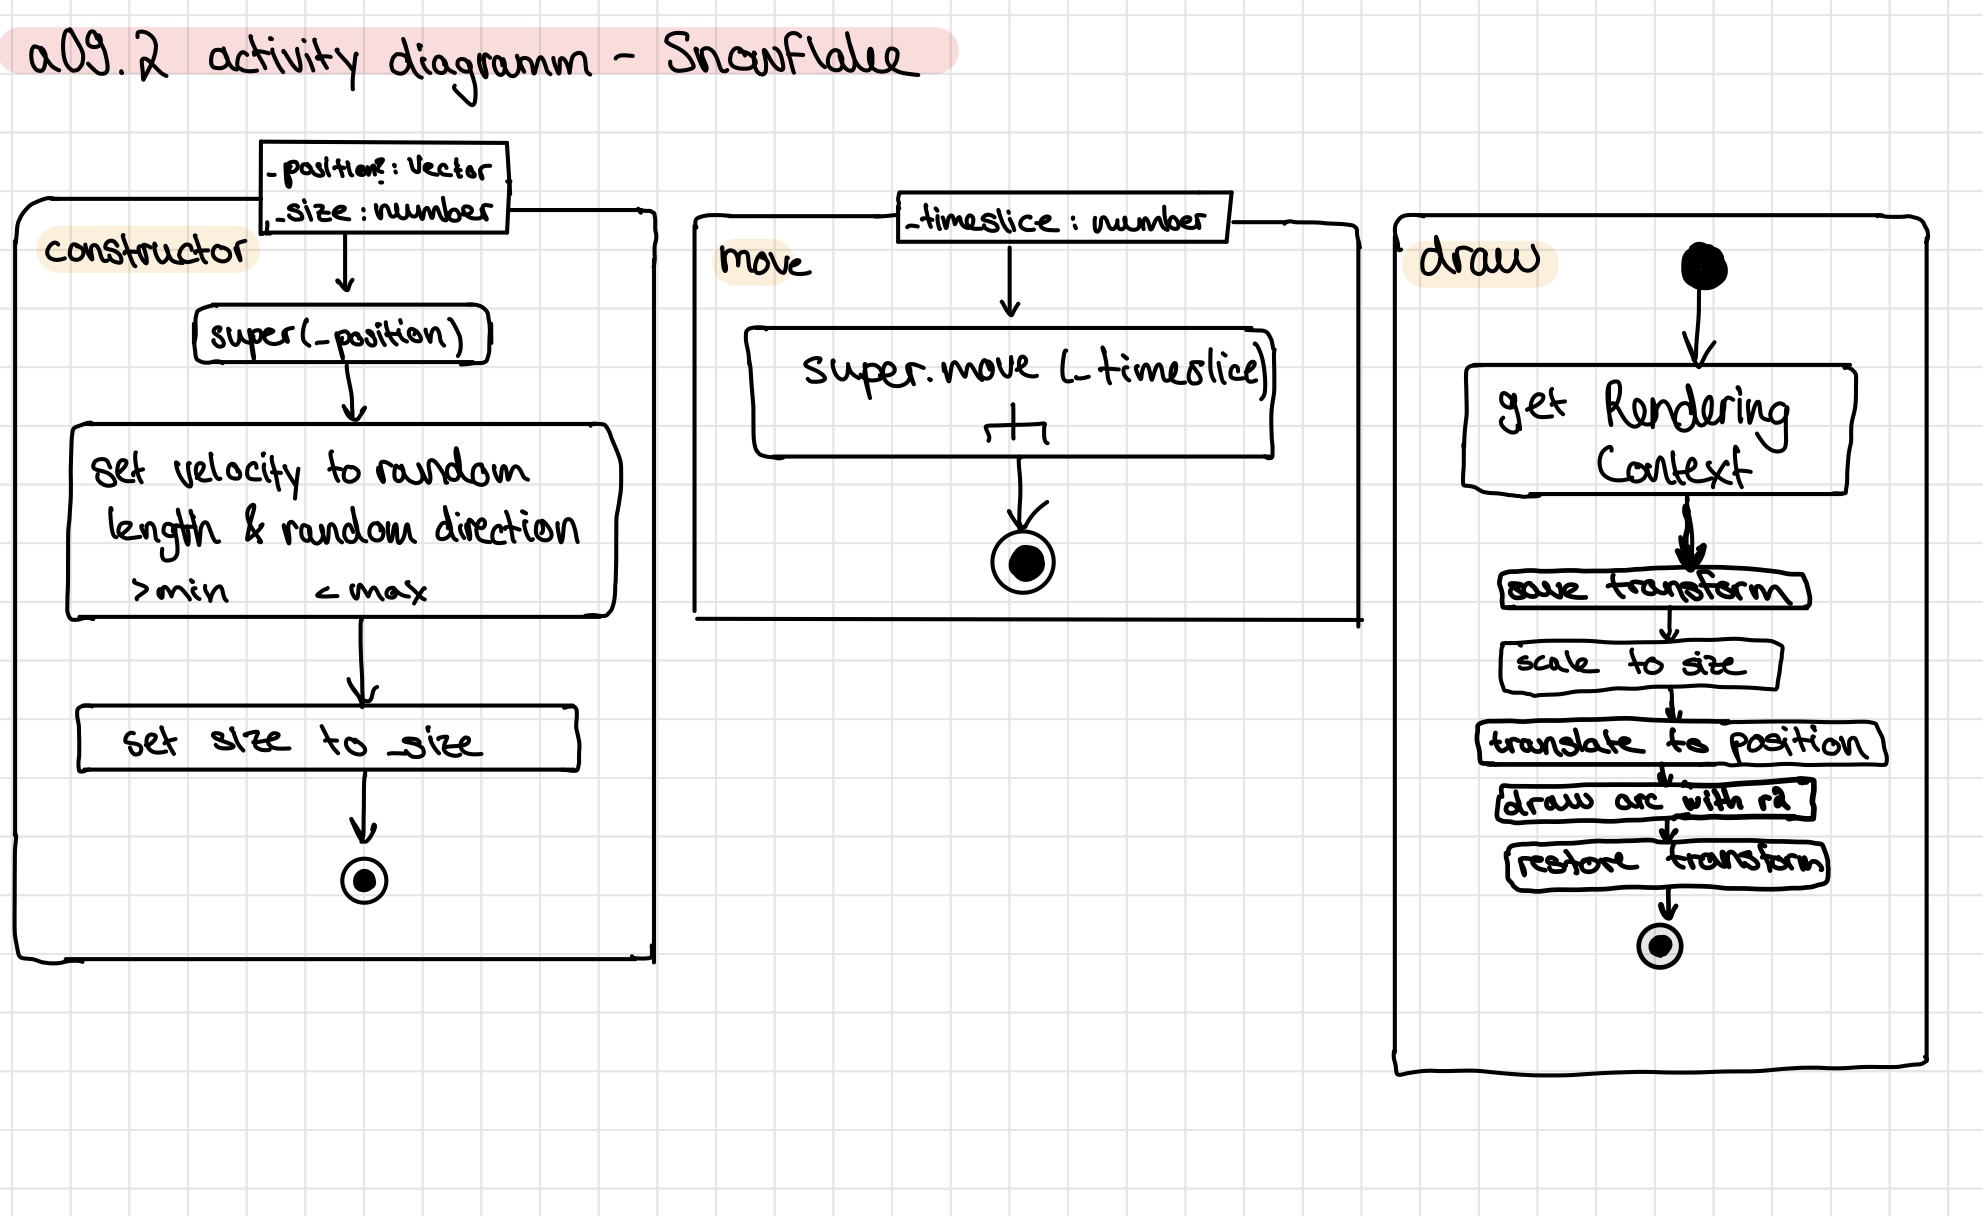 a09.2 activity diagramm - Snowflake
_position?: Vector
_size: number
constructor
super(_position)
set velocity to random
length & random direction
>min <max
set size to _size
_timeslice: number
move
super.move (_timeslice)
draw
get Rendering
Context
save transform
scale to size
translate to position
draw arc with r2
restore transform